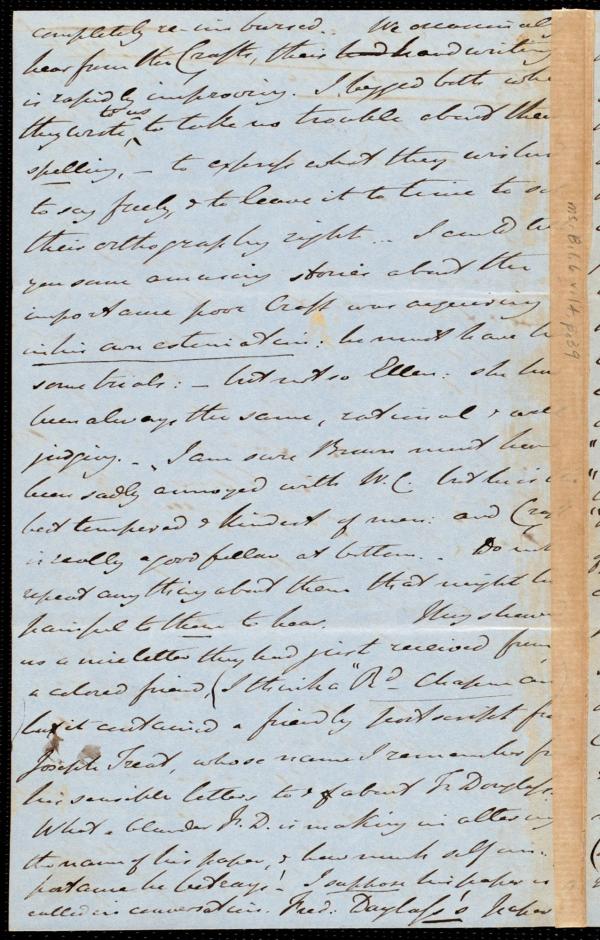 completely re-imbursed. We occasionally
hear from the Crafts, their hand handwriting
is rapidly improving. I begged both when
they wrote to us, to take no trouble about their
spelling, – to express what they wished
to say freely, & to leave it to time to set
their orthography right... I could tell
you some amusing stories about the
importance poor Craft was acquiring
in his own estimation: he must have had
some trials: – but not so Ellen: she has
been always the same, rational & well
judging. – I am sure Brown must have
been sadly annoyed with W.C. but he is the
best tempered & kindest of men: and Craft
is really a good fellow at bottom. . Do not
repeat anything about them that might be
painful to them to hear. They shewed
us a nice letter they had just received from
a colored friend, (I think a "Rd – Chapman
but it contained a friendly postscript from
Joseph Treat, whose name I remember
his sensible letters to & about Fr. Douglass.
What a blunder F.D. is making in altering
the name of his paper, & how much self im-
portance he betrays! I suppose his paper is
called in conversation. Fred: Douglass's paper
Ms. B.1.6 v.14 p.39